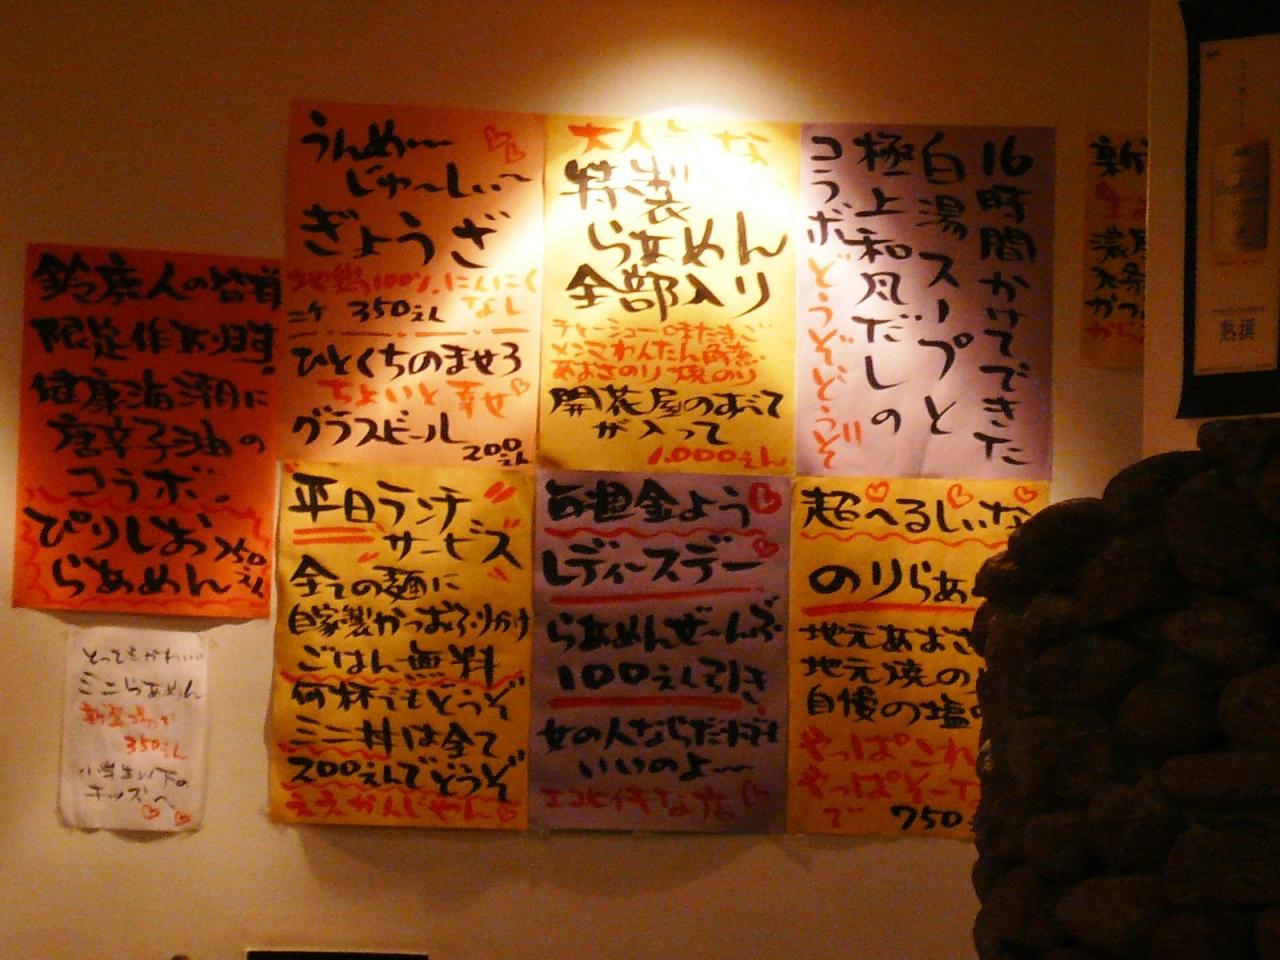 鈴鹿人の皆前
限定作ります。
健康海潮に
唐辛子油の
コラボ。
ぴりしお
らあめん
750えん
とってもかわいい
ミニらあめん
新登場で
350えん
小学生以下の
キッズへ
うんめ〜
じゅ〜しぃ〜
ぎょうざ
地鶏100%、にんにく
なし
ニケ 350えん
ひとくちのませろ
ちょいと幸せ
グラスビール
200えん
大人気な
特製
らあめん
全部入り
チャーシュー味たまご
メンマわんたん角煮
あおさのり 焼のり
開花屋のすべて
が入って
1,000えん
16時間かけてできた
白湯スープと
極上和風だしの
コラボどうぞどうぞ!!
平日ランチ
サービス
全ての麺に
自家製かつおふりかけ
ごはん無料
何杯でもどうぞ
ミニ丼は全て
200えんでどうぞ
ええかんじやん
毎週金よう
レディースデー
らあめんぜ〜んぶ
100えん引き
女の人ならだれでも
いいのよ〜
エコヒイキな店
超へるしぃな
のりらあ
地元あおさ
地元焼の
自慢の塩
やっぱこれ
やっぱそーで
で 750
新
濃厚
かつ
から
熟撰